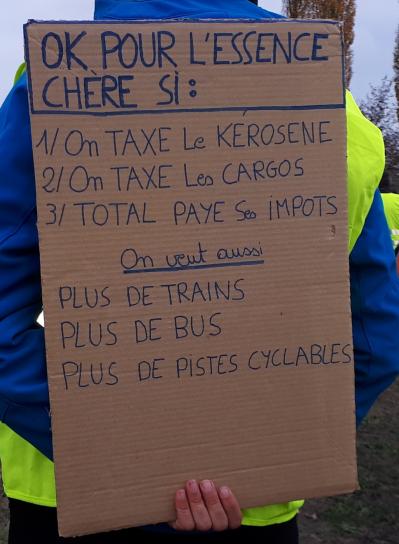 OK POUR L'ESSENCE
CHÈRE SI :
1/ On TAXE Le KÉROSENE
2/ On TAXE Les CARGOS
3/ TOTAL PAYE Ses IMPOTS
On veut aussi
PLUS DE TRAINS
PLUS DE BUS
PLUS DE PISTES CYCLABLES